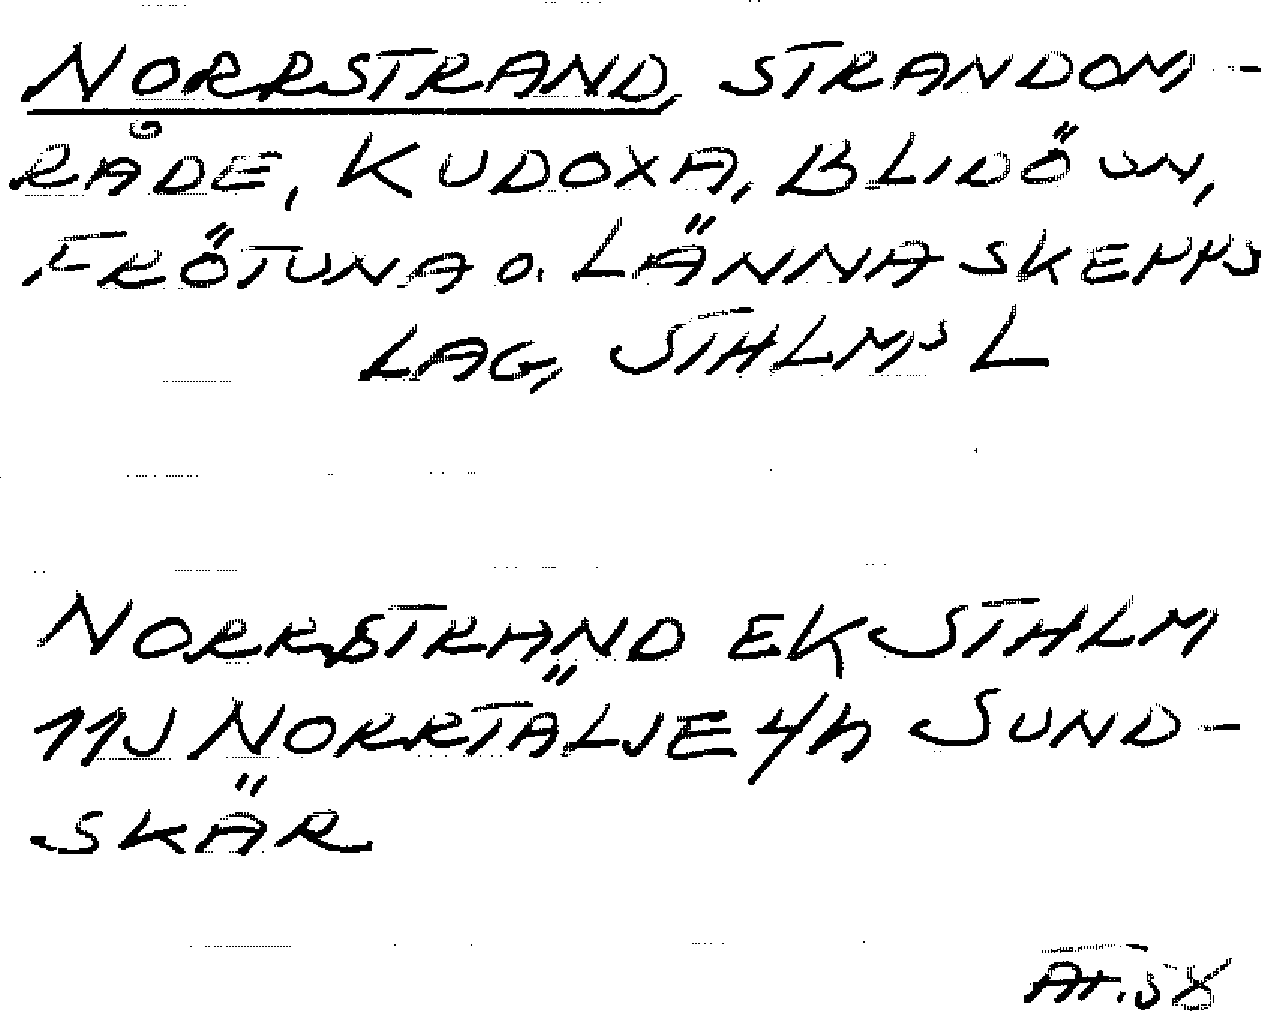 NORRSTRAND, STRANDOM-
RÅDE, KUDOXA, BLIDÖ SN,
FRÖTUNA O. LÄNNA SKEPPS
LAG, STHLMS L
NORRSTRAND EK STHLM
11J NORRTÄLJE 4h SUND-
SKÄR
AT.58